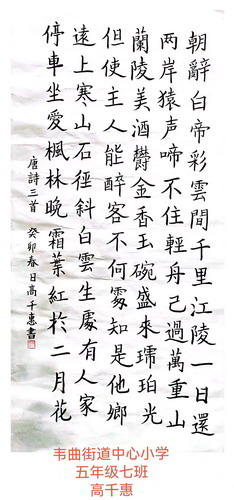 朝辭白帝彩雲間千里江陵一日還
两岸猿声啼不住輕舟已過萬重山
蘭陵美酒欝金香玉碗盛來琥珀光
但使主人能醉客不何處知是他鄉
遠上寒山石徑斜白雲生處有人家
停車坐愛楓林晚霜葉紅於二月花
唐詩三首 癸卯春日高千惠書
韦曲街道中心小学
五年级七班
高千惠